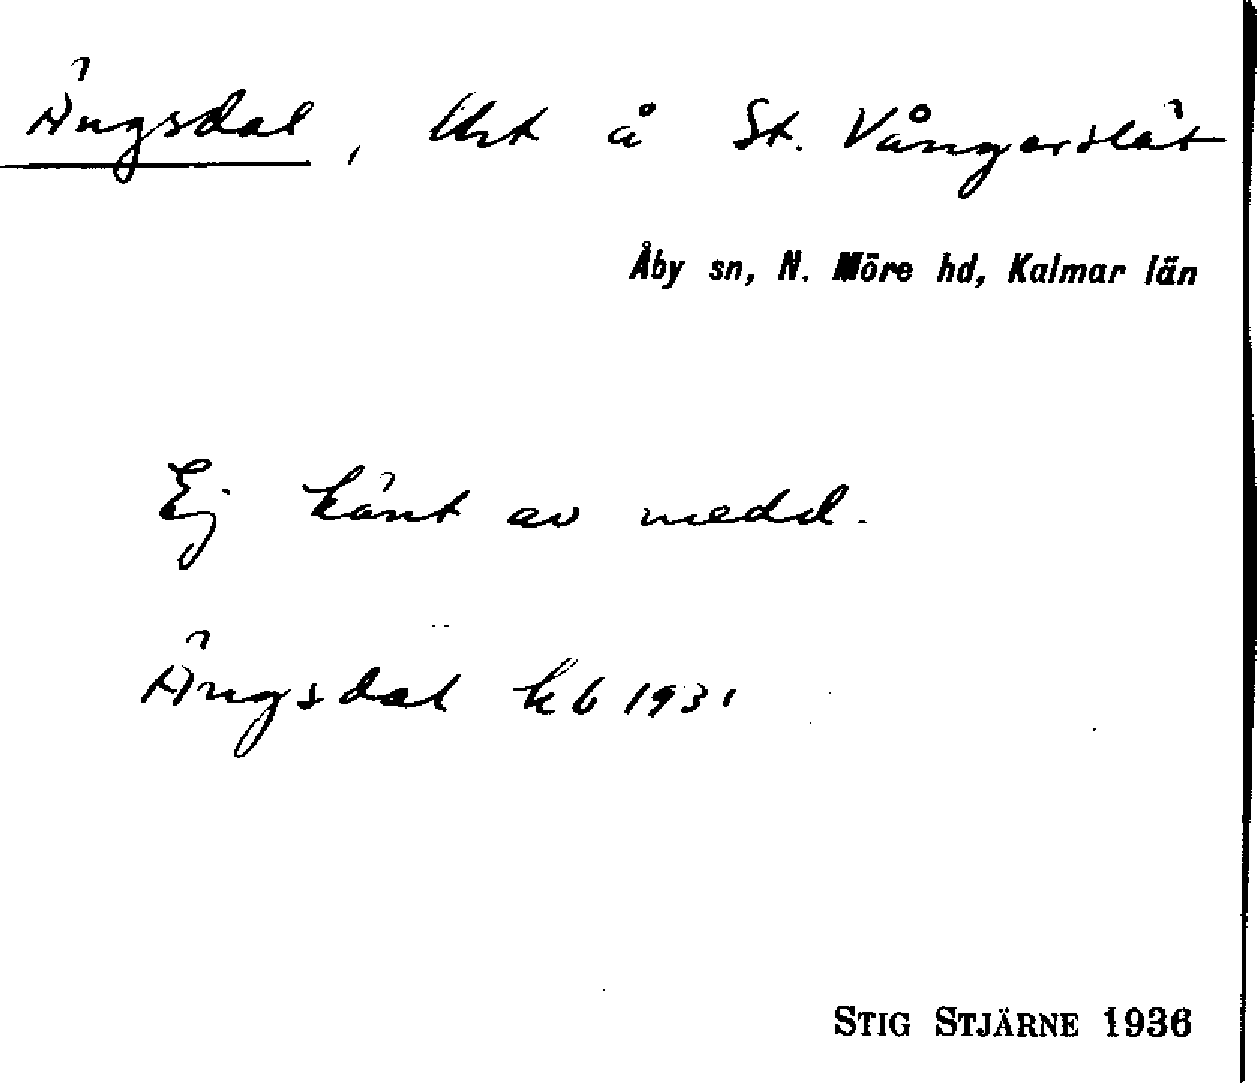 Ängsdal, lht å St. Vångerslät
Åby sn, N. Möre hd, Kalmar län
Ej känt av medd.
Ängsdal kb 1931
STIG STJÄRNE 1936